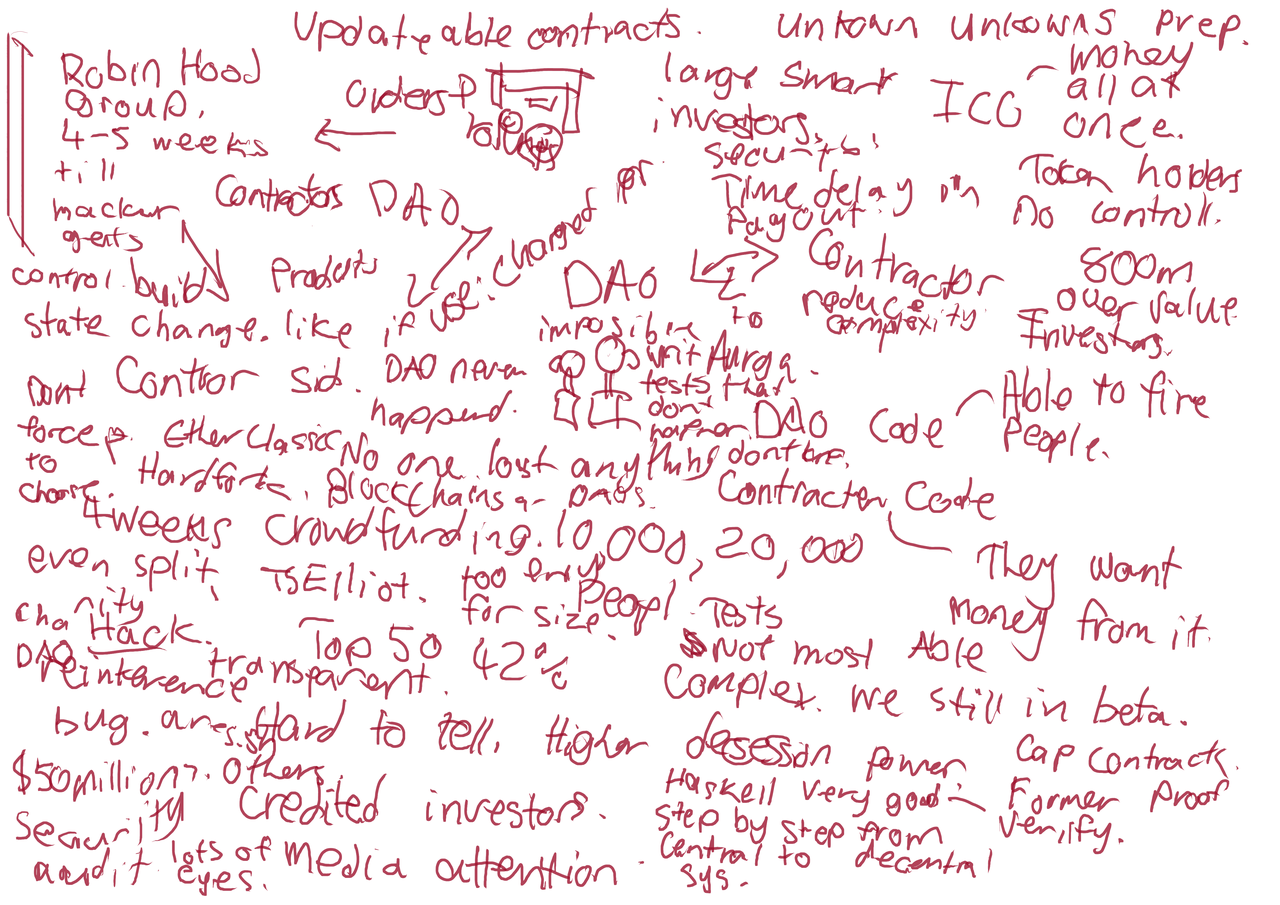 Updateable contracts.
Unkown unkowns prep.
Robin Hood
Group.
4-5 weeks
till
agents
control build
state change. like if use: charged per
Contractors DAO
Produts
large smart
investors.
ICO
money
all at
once.
Time delay on
Payout.
Token holders
no controll.
DAO
Contractor
reduce
complexity.
800m
over value
Investors.
imposible to
Dont
force
to
choose.
Contror sid.
DAO never
happend.
unit
tests that
dont
DAO Code
Able to fire
People.
EtherClassic
Hardfork.
No one lost anything
BlockChains
Contracter Code
They want
money from it.
4weeks crowdfunding. 10,000, 20,000
Peopl
even split,
TSElliot.
too
for size.
charity
DAO Hack.
transparent.
Top 50 42%
Tests
Not most Able
Complex. We still in beta.
bug.
Hard to tell. Higher desession power
Cap contract.
$50million?. others.
Credited investors.
Haskell very good
Former Proof
Verify.
Step by step from
Central to decentral
sys.
Security
audit
lots of
eyes.
Media attention.